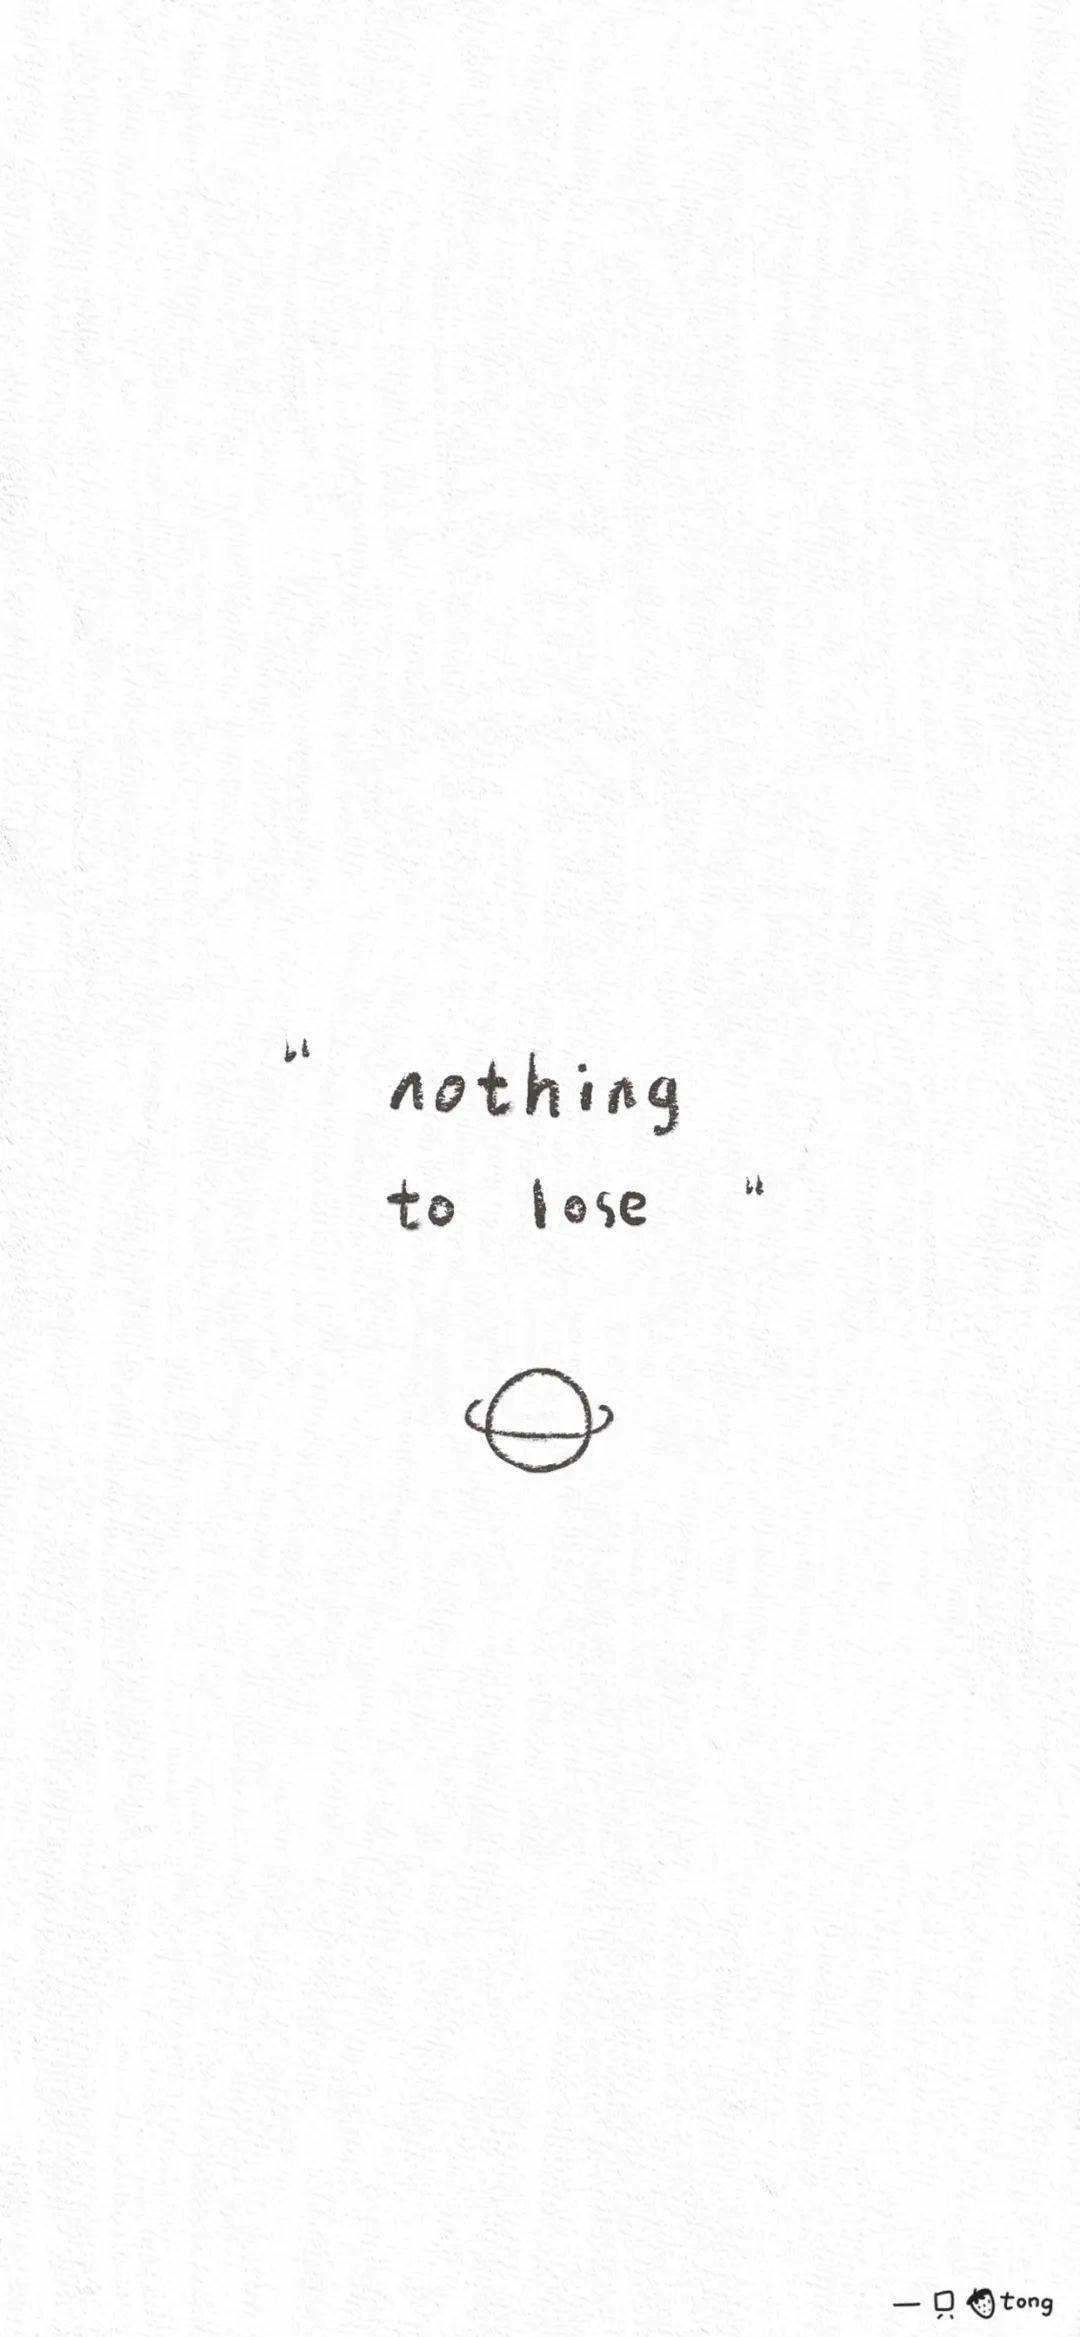 “ nothing
to lose “
一只🍓tong